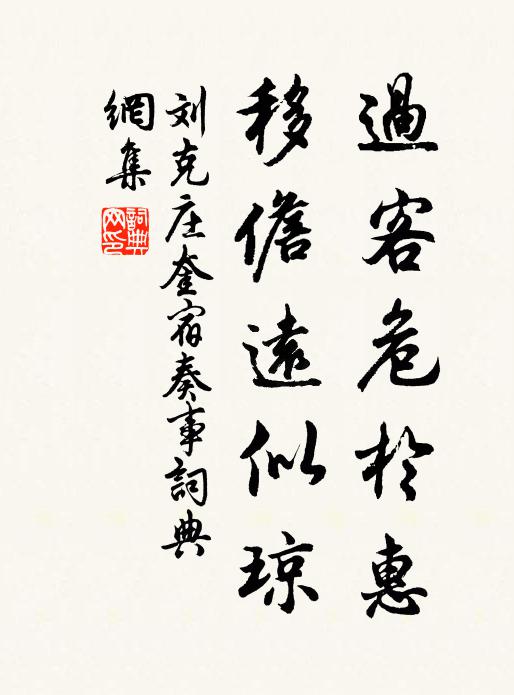 過客危於惠
移儋遠似琼
刘克庄奎宿奏事詞典
網集
詞典网印